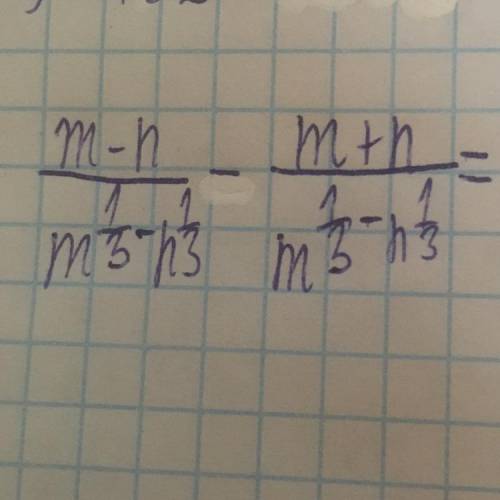 \frac{m-n}{m^{\frac{1}{3}}-n^{\frac{1}{3}}} - \frac{m+n}{m^{\frac{1}{3}}-n^{\frac{1}{3}}} =